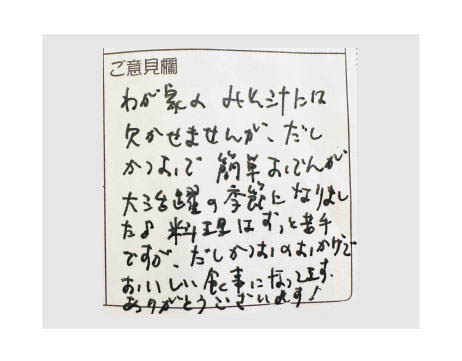 ご意見欄
わが家のみそ汁には
欠かせませんが、だし
かつおで簡単おでんが
大活躍の季節になりまし
た♪料理はずっと苦手
ですが、だしかつおのおかげで
おいしい食事になってます。
ありがとうございます!